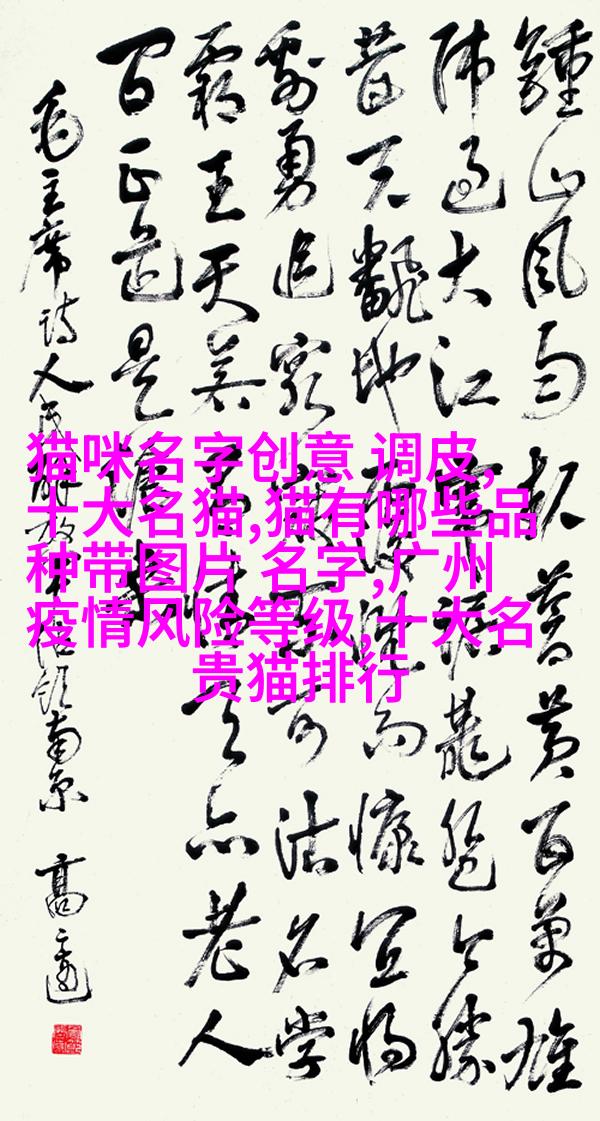 鍾山風雨起蒼黃百萬雄
師過大江虎踞龍盤今勝
昔天翻地覆慨而慷宜將
剩勇追窮寇不可沽名學
霸王天若有情天亦老人
間正道是滄桑
毛主席詩人民解放軍佔領南京 高
猫咪名字创意 调皮,
十大名猫,猫有哪些品
种带图片 名字,广州
疫情风险等级,十大名
贵猫排行